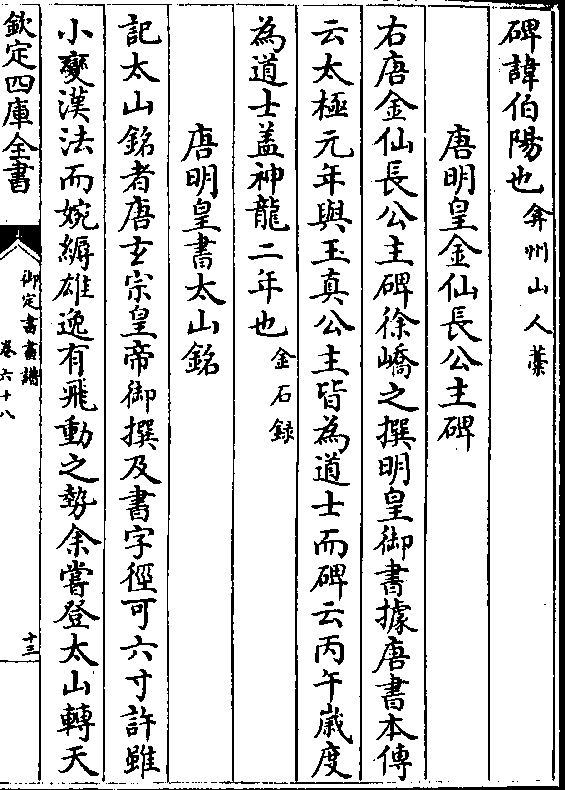 碑諱伯陽也弇州山人藁
唐明皇金仙長公主碑
右唐金仙長公主碑徐嶠之撰明皇御書據唐書本傳
云太極元年與玉真公主皆為道士而碑云丙午嵗度
為道士盖神龍二年也金石録
唐明皇書太山銘
記太山銘者唐玄宗皇帝御撰及書字徑可六寸許雖
小變漢法而婉縟雄逸有飛動之勢余嘗登太山轉天
欽定四庫全書
御定書畫譜
卷六十八
十三